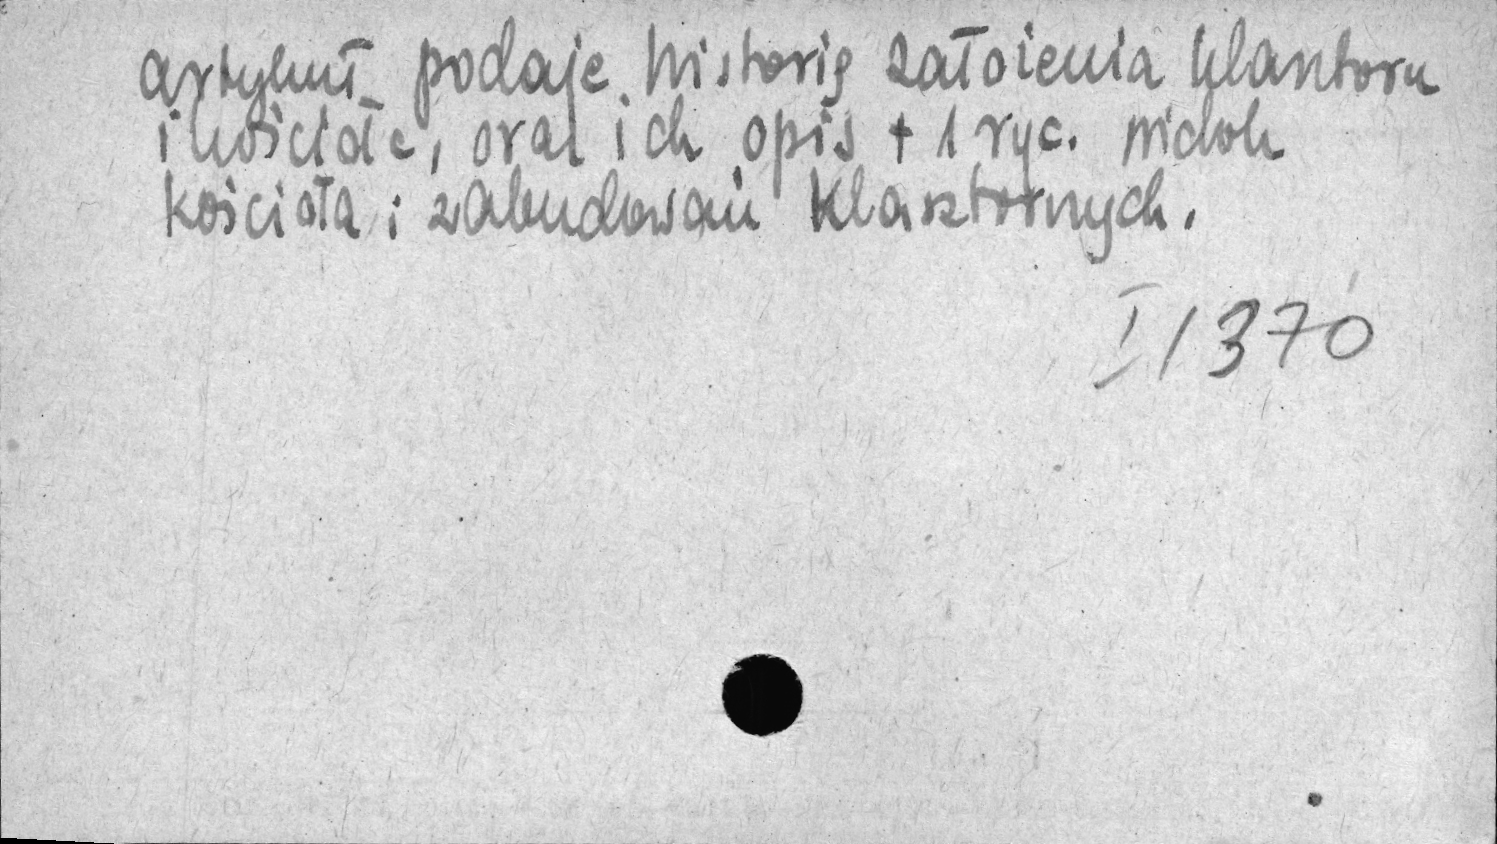 artykuł podaje historię założenia klasztoru
i kościoła, oraz ich opis + 1 ryc. widok
kościoła i zabudowań klasztornych.
I/370